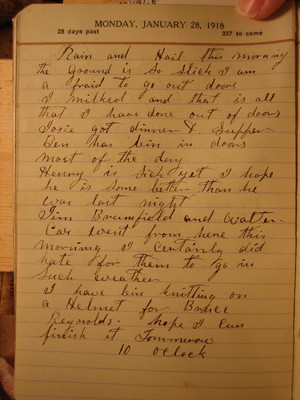 MONDAY, JANUARY 28, 1918
28 days past 337 to come
Rain and Hail this morning
the Ground is so slick I am
a fraid to go out doors
I milked and that is all
that I have done out of doors
Josie got dinner & Supper
Ben has bin in doors
most of the day
Henry is sick yet I hope
he is some better than he
was last night
Jim Brumfield and Walter
Car went from here this
morning I certanly did
hate for them to go in
such weather
I have bin knitting on
a Helmet for
Reynolds. hope I can
finish it Tommorow
10 oclock